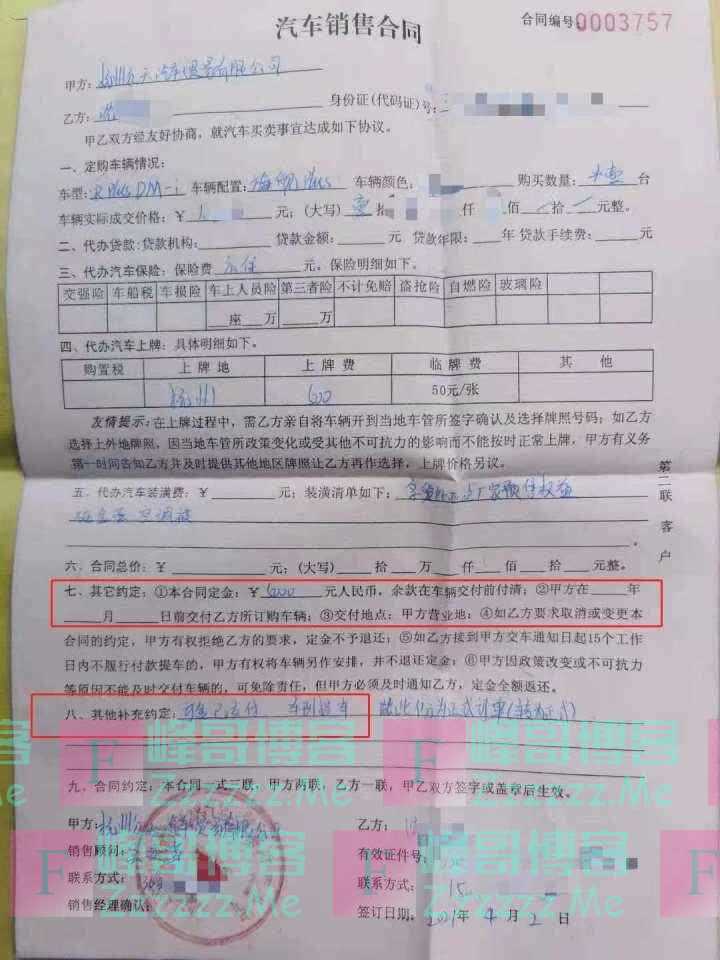 汽车销售合同
合同编号:0003757
甲方:杭州 天汽车贸易有限公司
乙方: 身份证(代码证)号:
甲乙双方经友好协商,就汽车买卖事宜达成如下协议。
一、定购车辆情况:
车型: Plus DM-i 车辆配置: Plus 车辆颜色: 购买数量: 台
车辆实际成交价格:¥ 元;(大写) 仟 佰 拾 元整。
二、代办贷款:贷款机构: 贷款金额: 元 贷款年限: 年 贷款手续费: 元
三、代办汽车保险:保险费 元。保险明细如下。
交强险 车船税 车损险 车上人员险 第三者险 不计免赔 盗抢险 自燃险 玻璃险
座 万 万
四、代办汽车上牌:具体明细如下。
购置税 上牌地 上牌费 临牌费 其他
杭州 600 50元/张
友情提示:在上牌过程中,需乙方亲自将车辆开到当地车管所签字确认及选择牌照号码;如乙方
选择上外地牌照,因当地车管所政策变化或受其他不可抗力的影响而不能按时正常上牌,甲方有义务
第一时间告知乙方并及时提供其他地区牌照让乙方再作选择,上牌价格另议。
五、代办汽车装潢费:¥ 元;装潢清单如下: 厂家预售权益
第二联 客户
六、合同总价:¥ 元;(大写) 万 仟 佰 拾 元整。
七、其它约定:①本合同定金:¥ 6000 元人民币,余款在车辆交付前付清;②甲方在 年
月 日前交付乙方所订购车辆;③交付地点:甲方营业地;④如乙方要求取消或变更本
合同的约定,甲方有权拒绝乙方的要求,定金不予退还;⑤如乙方接到甲方交车通知日起15个工作
日内不履行付款提车的,甲方有权将车辆另作安排,并不退还定金;⑥甲方因政策改变或不可抗力
等原因不能及时交付车辆的,可免除责任,但甲方必须及时通知乙方,定金全额返还。
八、其他补充约定: 已交付 车到提车 正式订单
九、合同约定:本合同一式三联,甲方两联,乙方一联,甲乙双方签字或盖章后生效。
甲方:杭州 有限公司 乙方:
销售顾问: 有效证件号:
联系方式: 联系方式:15
销售经理确认: 签订日期:2021年 4 月 2 日
F 峰哥博客
Zzzzzz.Me